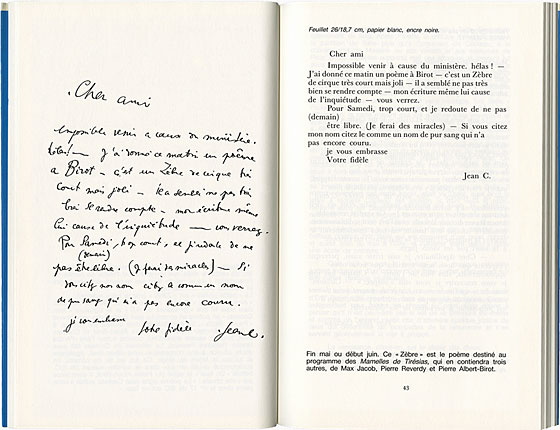 Cher ami
Impossible venir à cause du ministère.
hélas! — J'ai donné ce matin un poème
à Birot — c'est un Zèbre de cirque très
court mais joli — il a semblé ne pas très
bien se rendre compte — mon écriture même
lui cause de l'inquiétude — vous verrez.
Pour Samedi, trop court, et je redoute de ne
(demain)
pas être libre. (Je ferai des miracles) — Si
vous citez mon nom citez le comme un nom
de pur sang qui n'a pas encore couru.
je vous embrasse
Votre fidèle Jean C.
Feuillet 26/18,7 cm, papier blanc, encre noire.
Cher ami
Impossible venir à cause du ministère. hélas ! —
J'ai donné ce matin un poème à Birot — c'est un Zèbre
de cirque très court mais joli — il a semblé ne pas très
bien se rendre compte — mon écriture même lui cause
de l'inquiétude — vous verrez.
Pour Samedi, trop court, et je redoute de ne pas
(demain)
être libre. (Je ferai des miracles) — Si vous citez
mon nom citez le comme un nom de pur sang qui n'a
pas encore couru.
je vous embrasse
Votre fidèle
Jean C.
Fin mai ou début juin. Ce « Zèbre » est le poème destiné au
programme des Mamelles de Tirésias, qui en contiendra trois
autres, de Max Jacob, Pierre Reverdy et Pierre Albert-Birot.
43